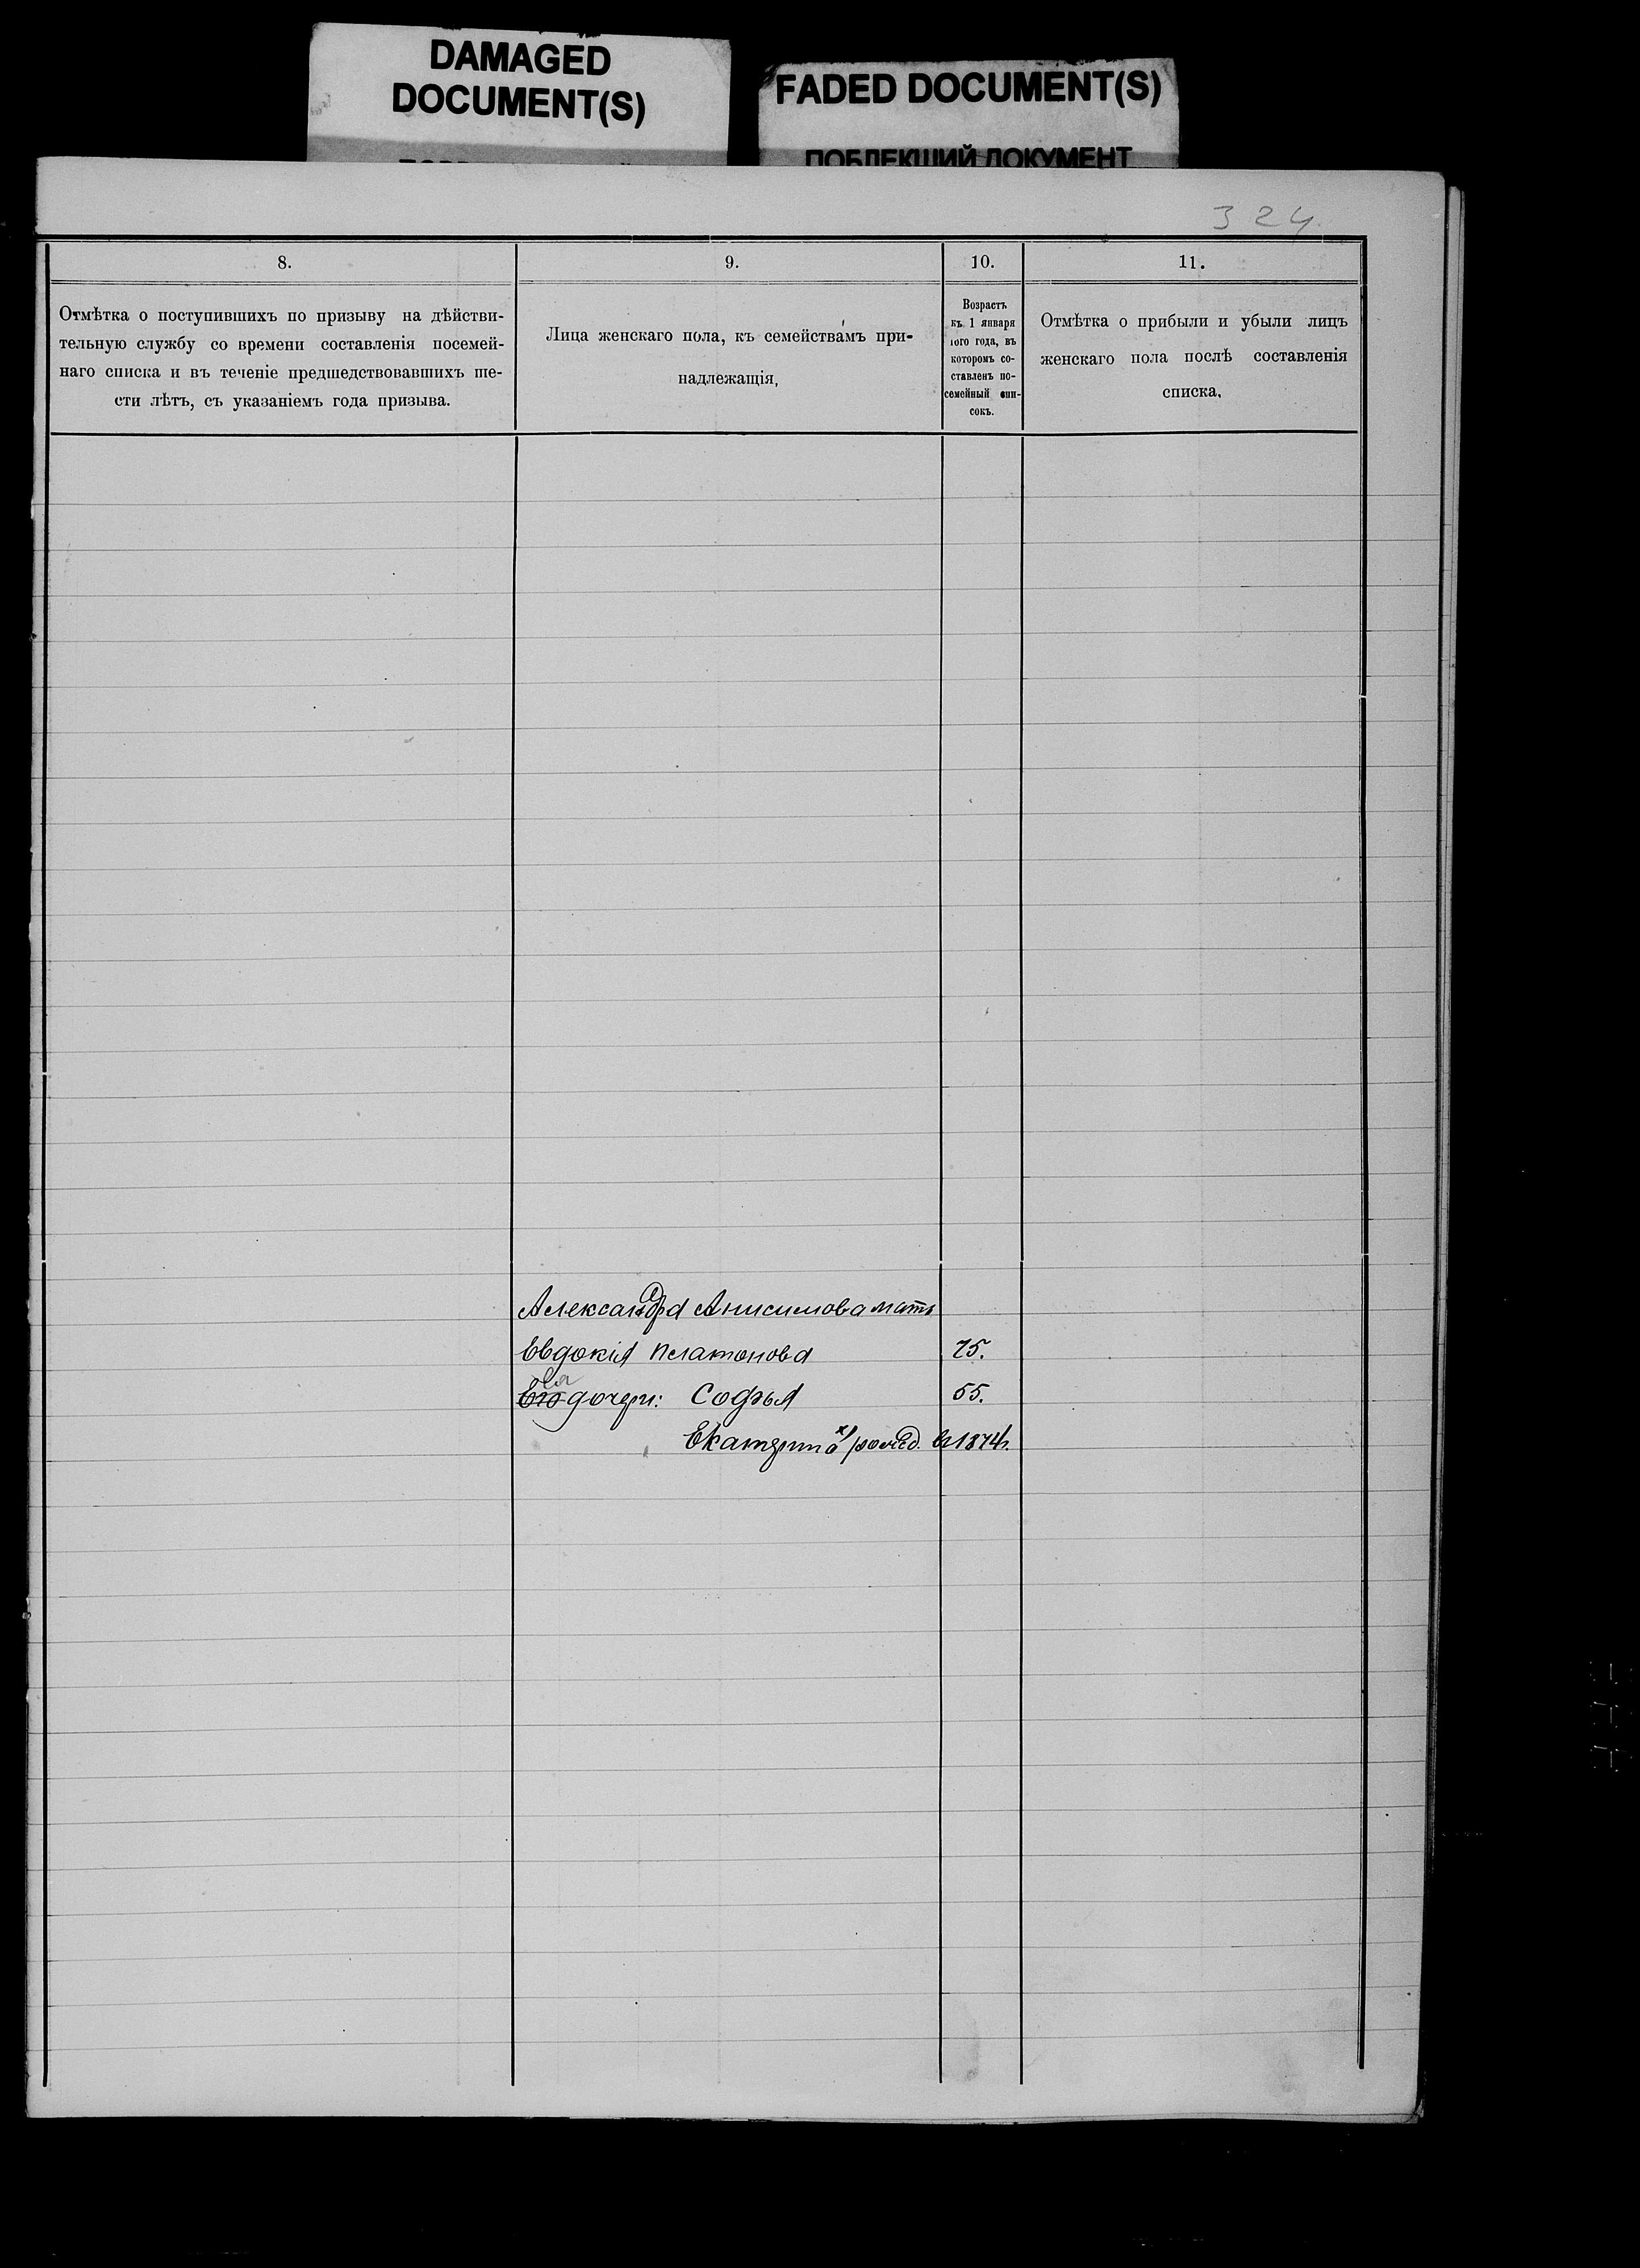 DAMAGED
DOCUMENT(S)
FADED DOCUMENT(S)
ПОБЛЕКШИЙ ДОКУМЕНТ
324
8.
Отмѣтка о поступившихъ по призыву на дѣйстви-
тельную службу со времени составленія посемей-
наго списка и въ теченіе предшедствовавшихъ ше-
сти лѣтъ, съ указаніемъ года призыва.
9.
Лица женскаго пола, къ семействамъ при-
надлежащія,
10.
Возрастъ
къ 1 января
того года, въ
которомъ со-
ставленъ по-
семейный спи-
сокъ.
11.
Отмѣтка о прибыли и убыли лицъ
женскаго пола послѣ составленія
списка.
Александра Анисимова мать
Евдокія Платонова 75.
Его ея дочери: Софья 55.
Екатерина х) рожд. въ 1874 г.